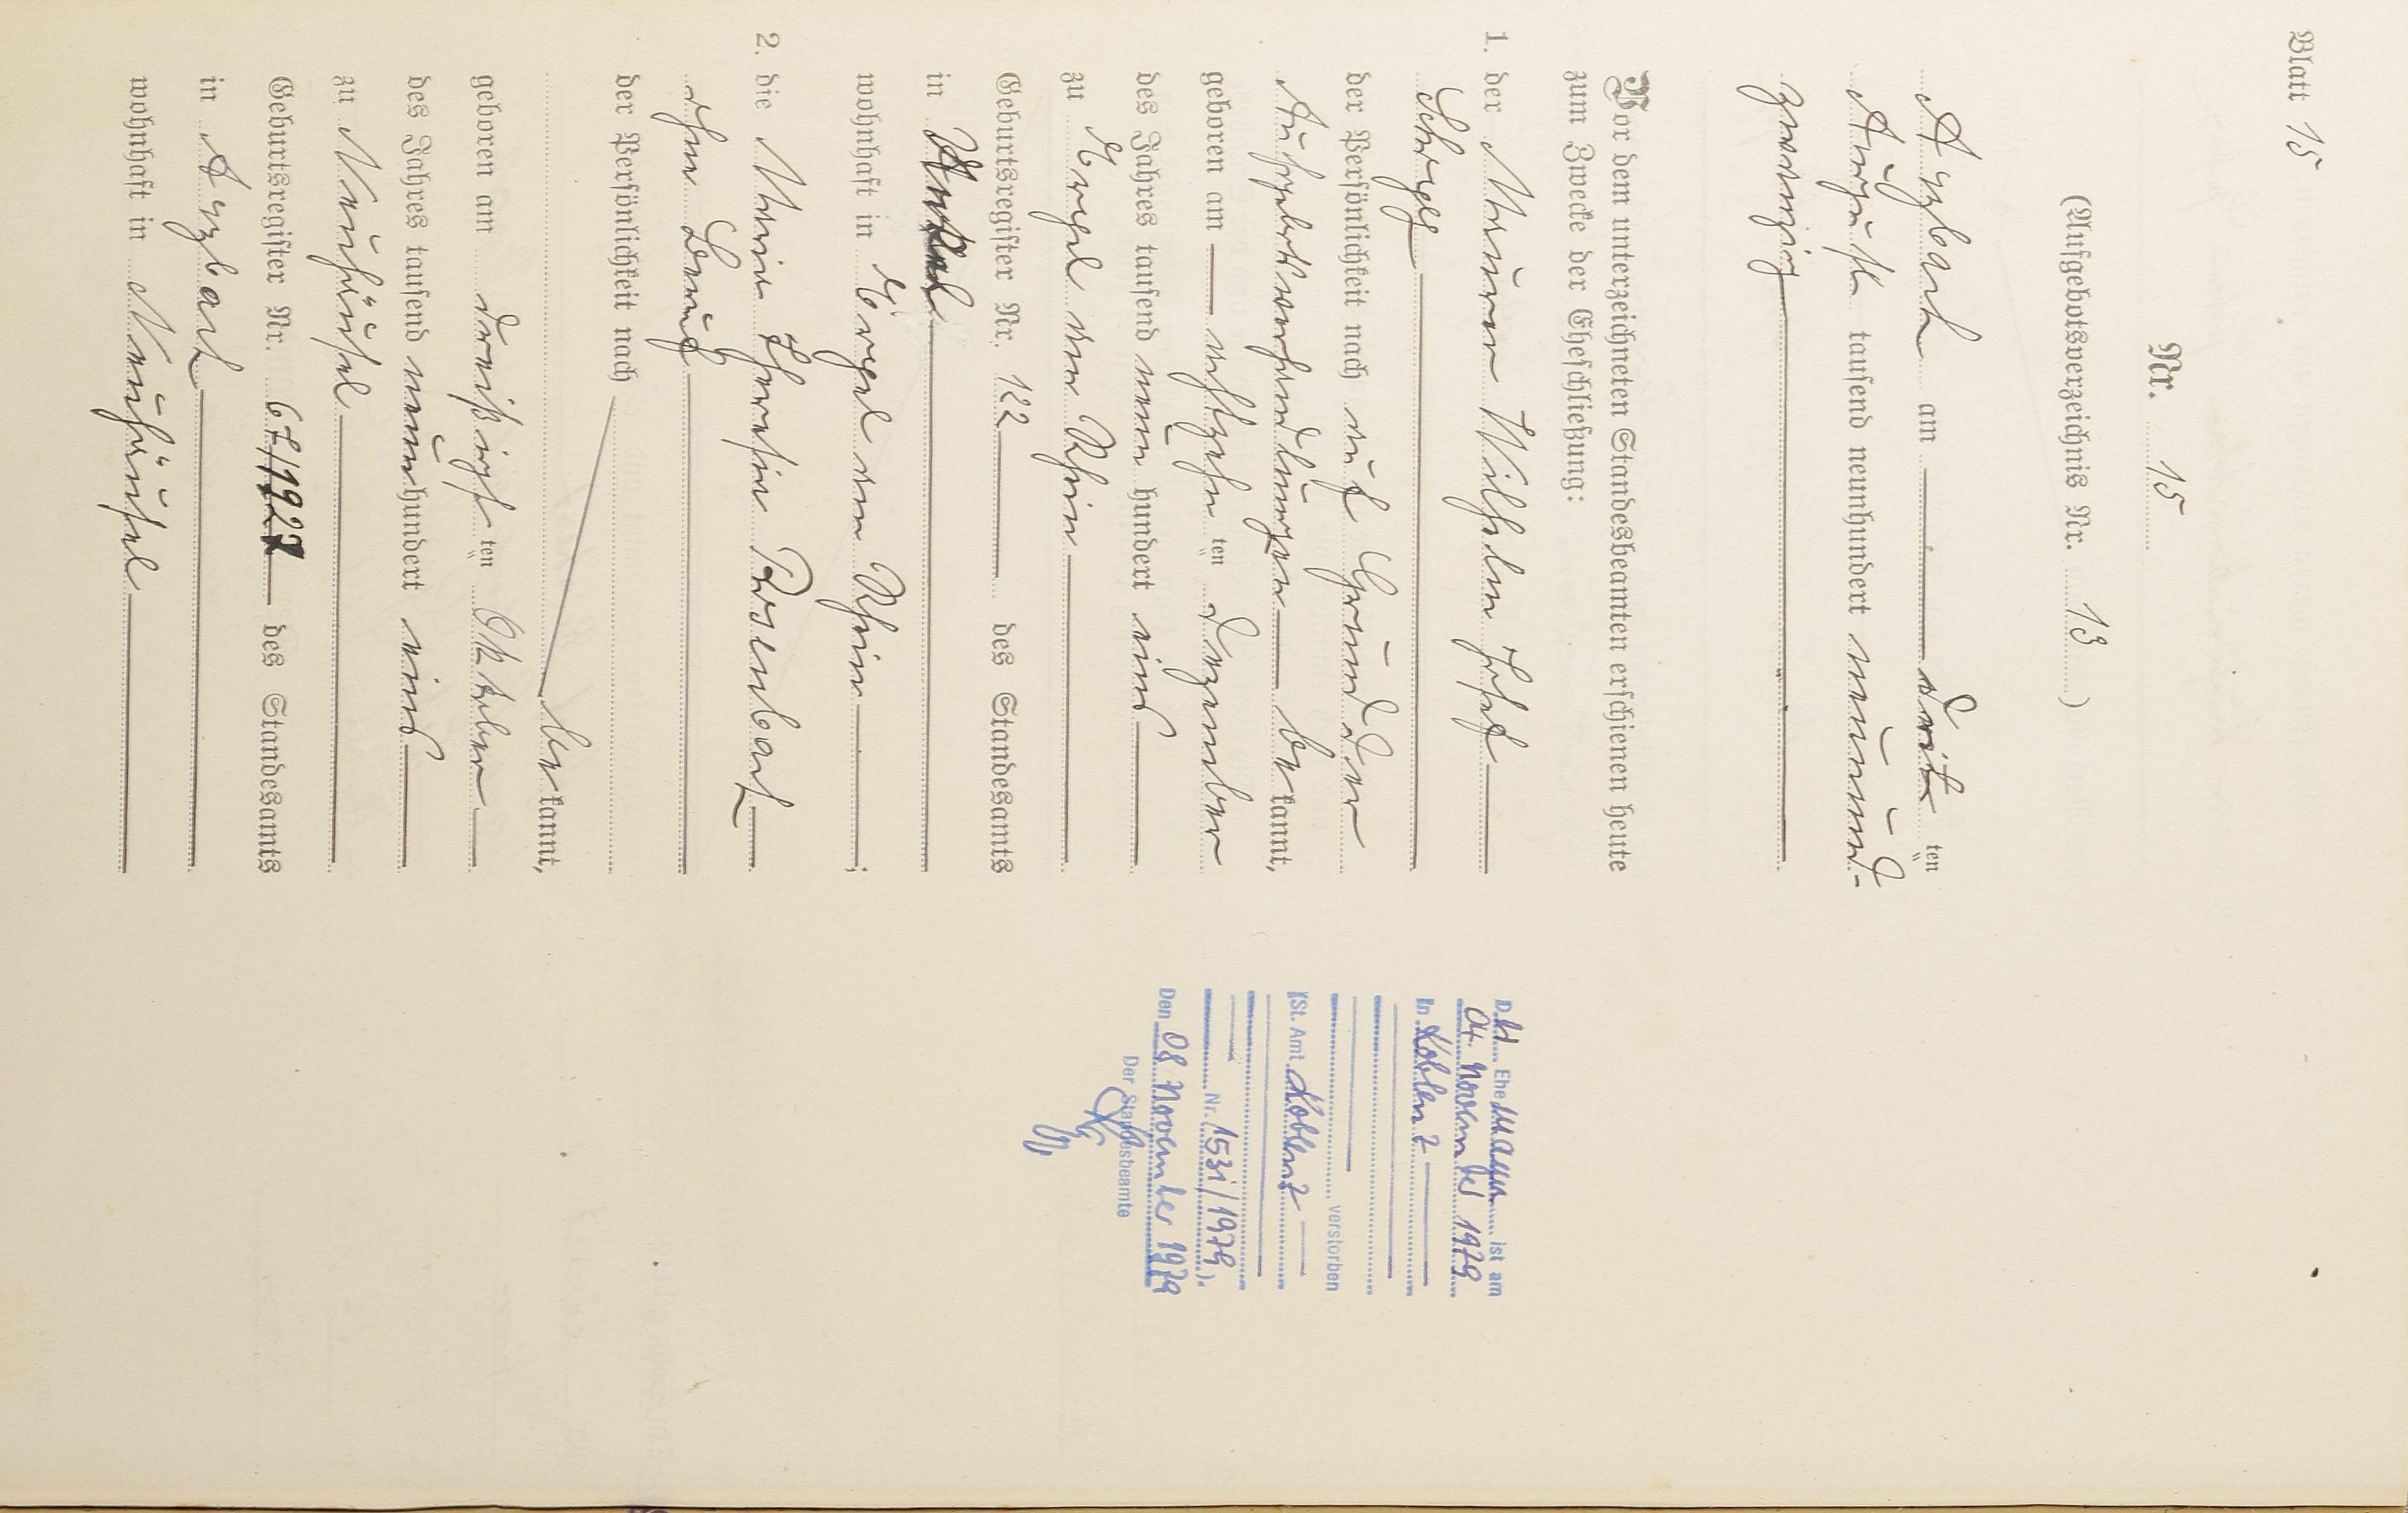 Blatt 15
Nr. 15
(Aufgebotsverzeichnis Nr. 13)
Arzbach am dritten
August tausend neunhundert neunund-
zwanzig
Vor dem unterzeichneten Standesbeamten erschienen heute
zum Zwecke der Eheschließung:
1. der Maurer Wilhelm Josef
der Persönlichkeit nach auf Grund der
Aufgebotsverhandlungen bekannt,
geboren am achtzehnten Dezember
des Jahres tausend neunhundert eins
zu Erpel am Rhein
Geburtsregister Nr. 122 des Standesamts
in Unkel
wohnhaft in Erpel am Rhein;
2. die Maria Theresia Rosenbach
ohne Beruf
der Persönlichkeit nach
bekannt,
geboren am dreißigsten Oktober
des Jahres tausend neunhundert eins
zu Neuhäusel
Geburtsregister Nr. 67/1927 des Standesamts
in Arzbach
wohnhaft in Neuhäusel
Der Ehemann ist am
04. November 1979
in Koblenz
verstorben
(St. Amt Koblenz
Nr. 1531/1979).
Den 08 November 1979
Der Standesbeamte